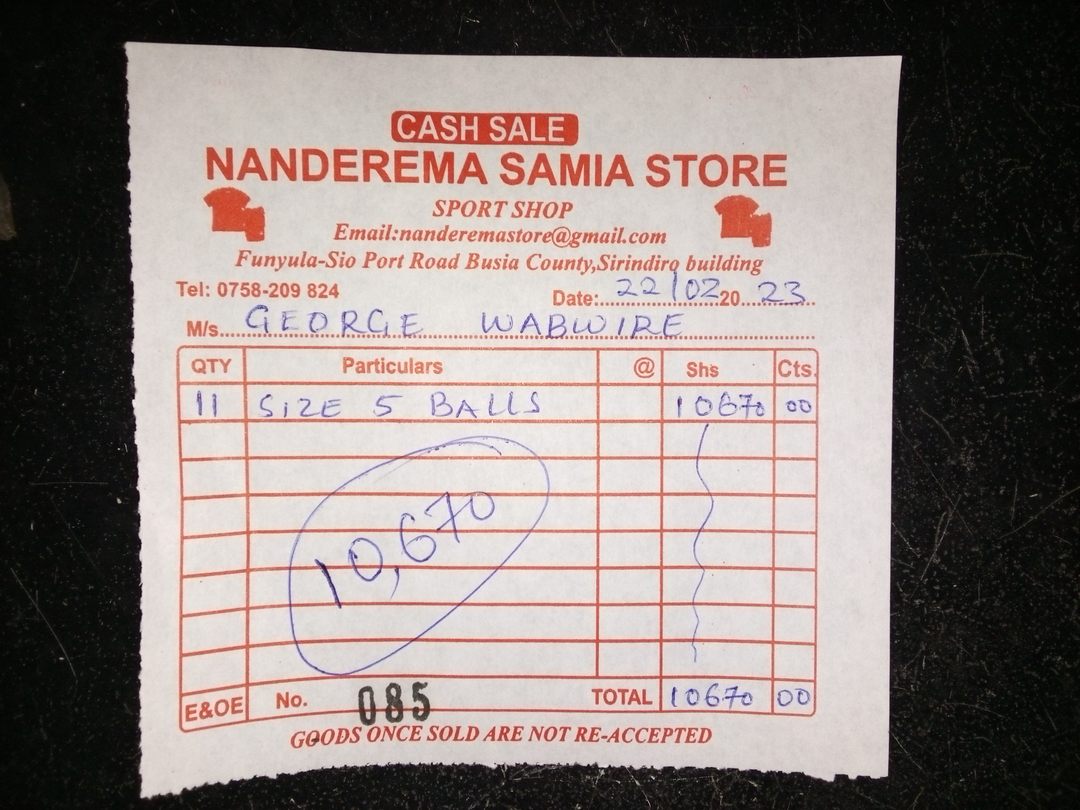 CASH SALE
NANDEREMA SAMIA STORE
SPORT SHOP
Email:nanderemastore@gmail.com
Funyula-Sio Port Road Busia County,Sirindiro building
Tel: 0758-209 824 Date:....22/02..20...23..
M/s....GEORGE WABWIRE
QTY Particulars @ Shs Cts.
11 SIZE 5 BALLS 10670 00
10,670
E&OE No. 085 TOTAL 10670 00
GOODS ONCE SOLD ARE NOT RE-ACCEPTED